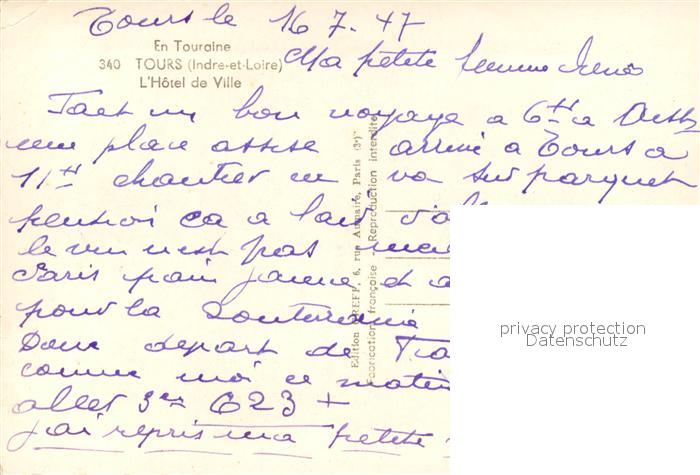 Tours le 16.7.47
En Touraine
340 TOURS (Indre-et-Loire)
L'Hôtel de Ville
Ma petite femme
Fait un bon voyage a 6H a
une place assise arrivé a Tours a
11H chantier en va sur parquet
ça a l'air d'a
le vin n'est pas
Paris pain jaune et
pour la Souterraine
Donc départ de
comme moi ce matin
aller 3e 623 +
j'ai repris ma petite
Edition GREFF, 6, rue Aumaire, Paris (3e)
Fabrication française - Reproduction interdite
privacy protection
Datenschutz